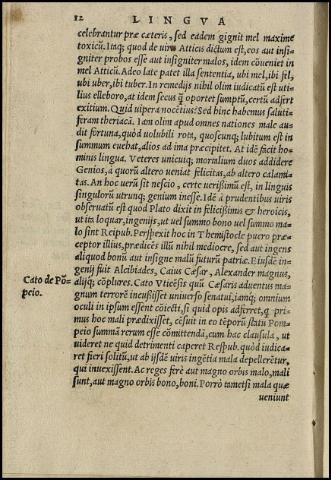 12 LINGVA
celebrantur præ cæteris, sed eadem gignit mel maxime
toxicũ. Itaq; quod de viris Atticis dictum est, eos aut insi-
gniter probos esse aut insigniter malos, idem cõuenit in
mel Atticũ. Adeo late patet illa sententia, ubi mel, ibi fel,
ubi uber, ibi tuber. In remedijs nihil olim iudicatũ est uti-
lius elleboro, at idem secus q̃ oportet sumptũ, certũ adfert
exitium. Quid uipera nocẽtius? Sed hinc habemus saluti-
feram theriacã. Iam olim apud omnes nationes male au-
dit fortuna, quòd uolubili rota, quoscunq; lubitum est in
summum euehat, alios ad ima præcipitet. At idẽ facit ho-
minus lingua. Veteres unicuiq; mortalium duos addidere
Genios, a quorũ altero ueniat felicitas, ab altero calami-
tas. An hoc uerũ sit nescio, certe uerißimũ est, in linguis
singulorũ utrunq; genium inesse. Idẽ à prudentibus uiris
obseruatũ est quod Plato dixit in felicißimis & heroicis,
ut ita loquar, ingenijs, ut uel summo bono uel summo ma-
lo sint Reipub. Perspexit hoc in Themistocle puero præ-
ceptor illius, prædicẽs illũ nihil mediocre, sed aut ingens
aliquod bonũ aut insigne malũ futurũ patriæ. Eiusdẽ in-
genij fuit Alcibiades, Caius Cæsar, Alexander magnus,
Cato de Põ-
peio.
alijq; cõplures. Cato Vticẽsis quũ Cæsaris aduentus ma-
gnum terrorẽ incußisset uniuerso senatui, iamq; omnium
oculi in ipsum essent cõiecti, si quid opis adferret, q̃ pri-
mus hoc mali prædixisset, cẽsuit in eo tẽpori statu Pom-
peio summã rerum esse cõmittendã, cum hac clausula, ut
uideret ne quid detrimenti caperet Respub. quòd iudica-
ret fieri solitũ, ut ab ijsdẽ uiris ingẽtia mala depelleretur,
qui inuexissent. Ac reges ferè aut magno orbis malo, mali
sunt, aut magno orbis bono, boni. Porrò tametsi mala quæ
ueniunt